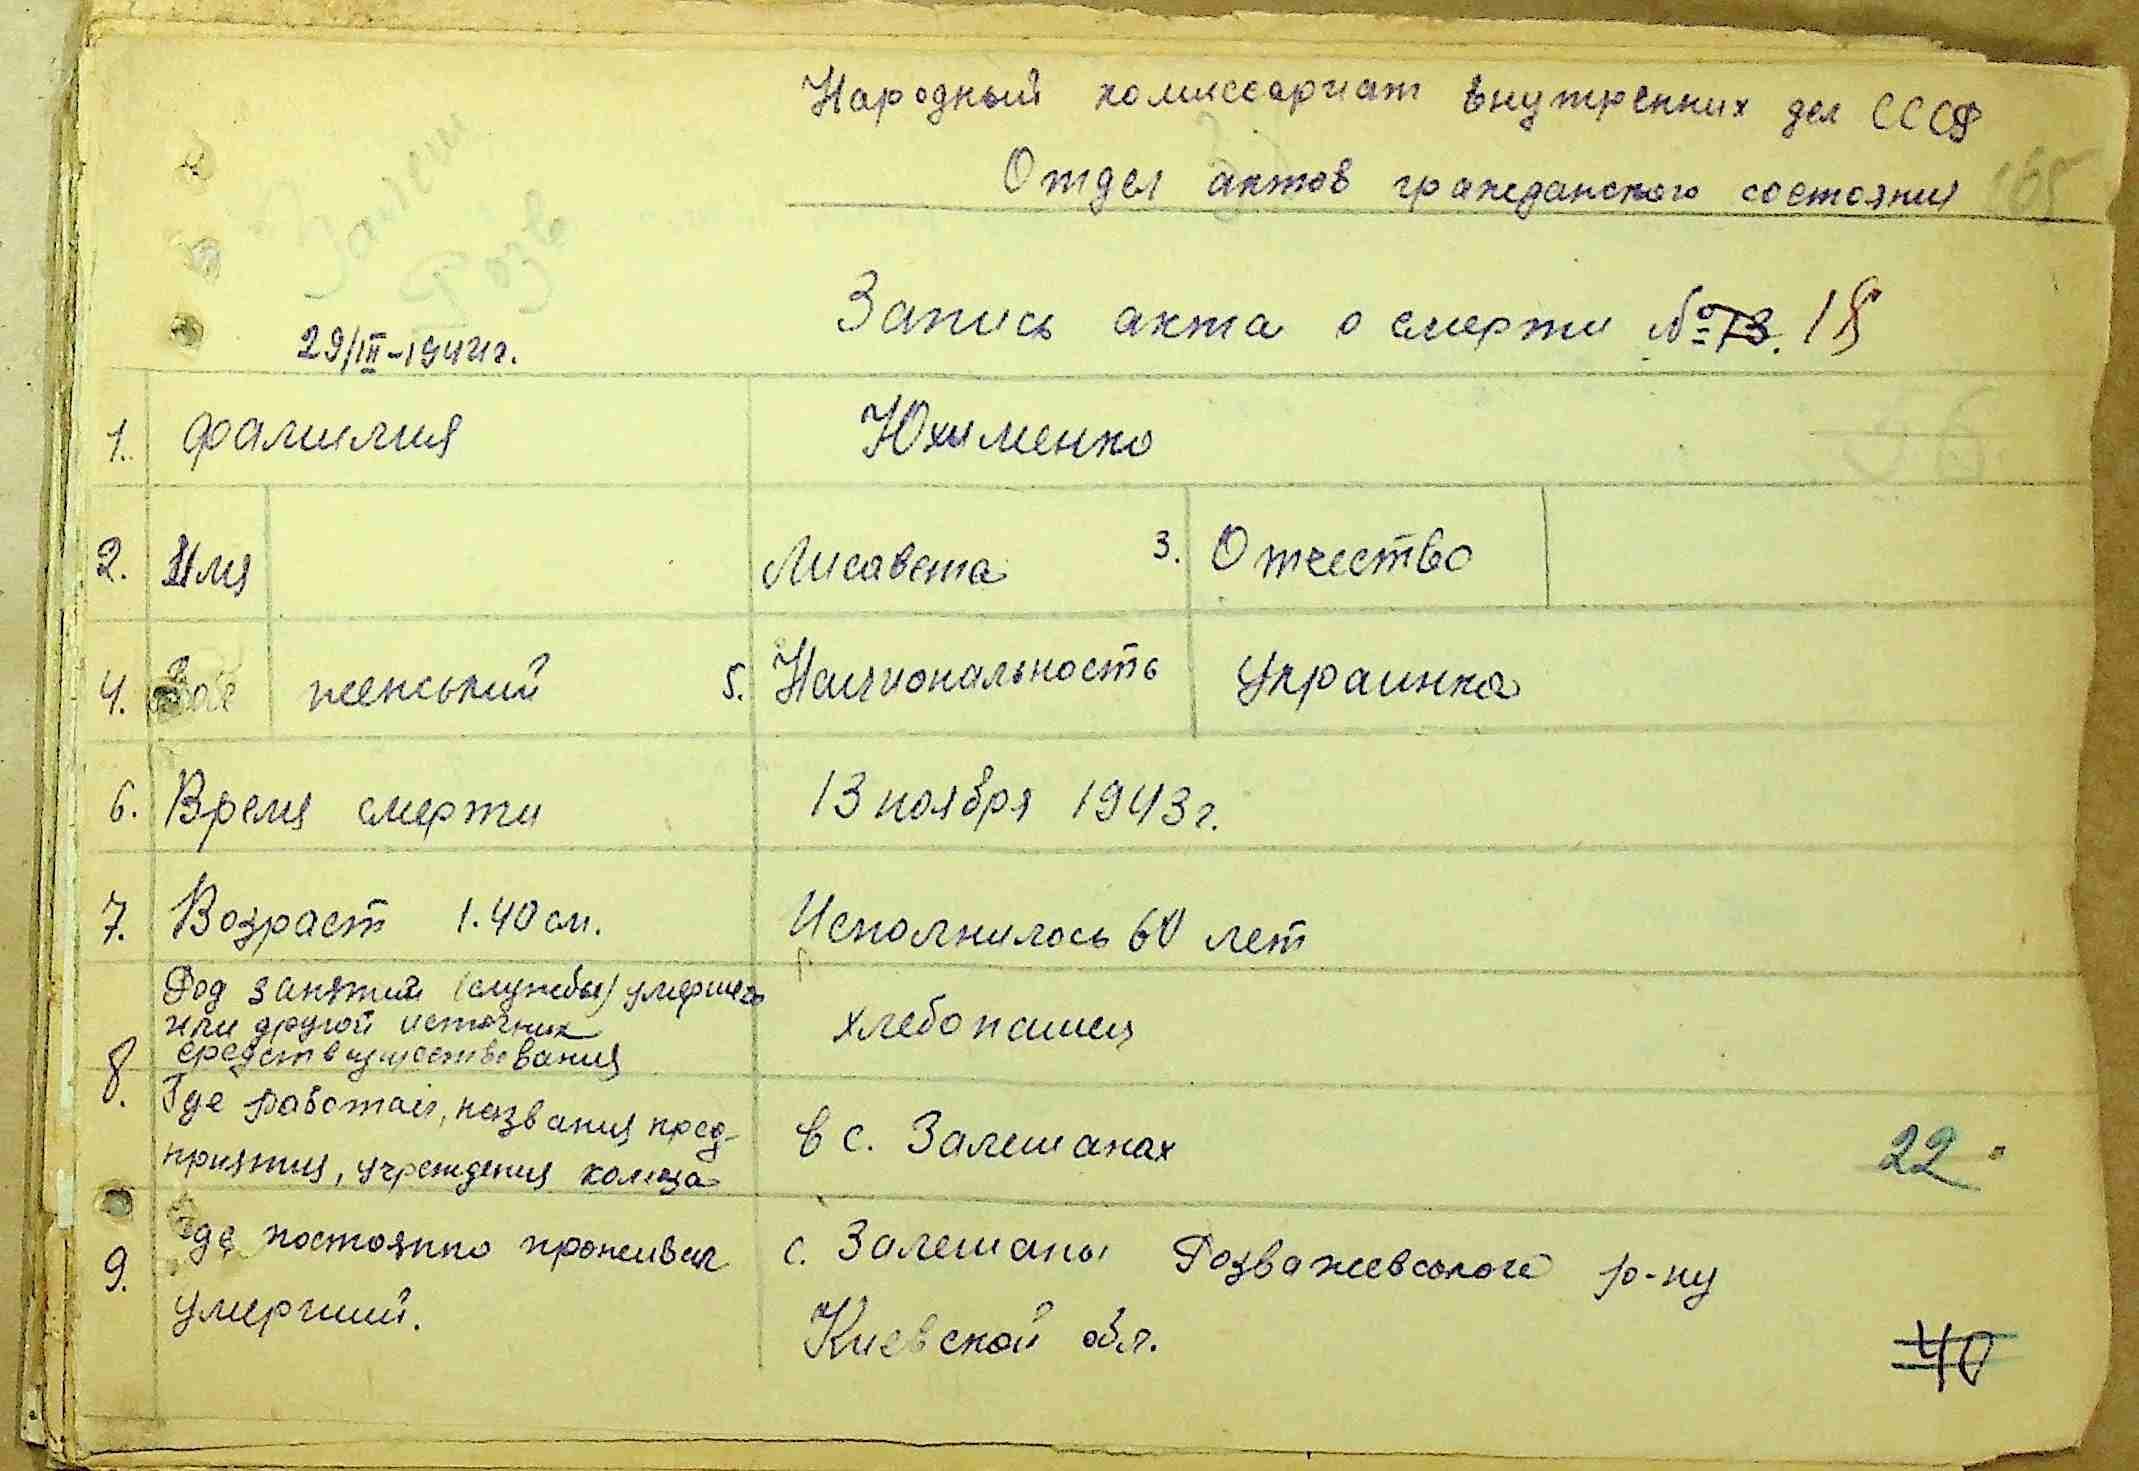 Народный комиссариат внутренних дел СССР
Отдел актов гражданского состояния
165
29/III-1944г.
Запись акта о смерти № 73. 18
1. фамилия Юхименко
2. Имя Лисавета 3. Отчество
4. женський 5. Национальность украинка
6. Время смерти 13 ноября 1943г.
7. Возраст 1.40 см. Исполнилось 60 лет
8. Род занятий (службы) умершего
или другой источник
средств существования
хлебопашец
Где работал, названия пред-
приятия, учреждения колхоза
в с. Залешанах
22
9. где постоянно проживал
умерший.
с. Залешаны Розважевського р-ну
Киевской обл.
40